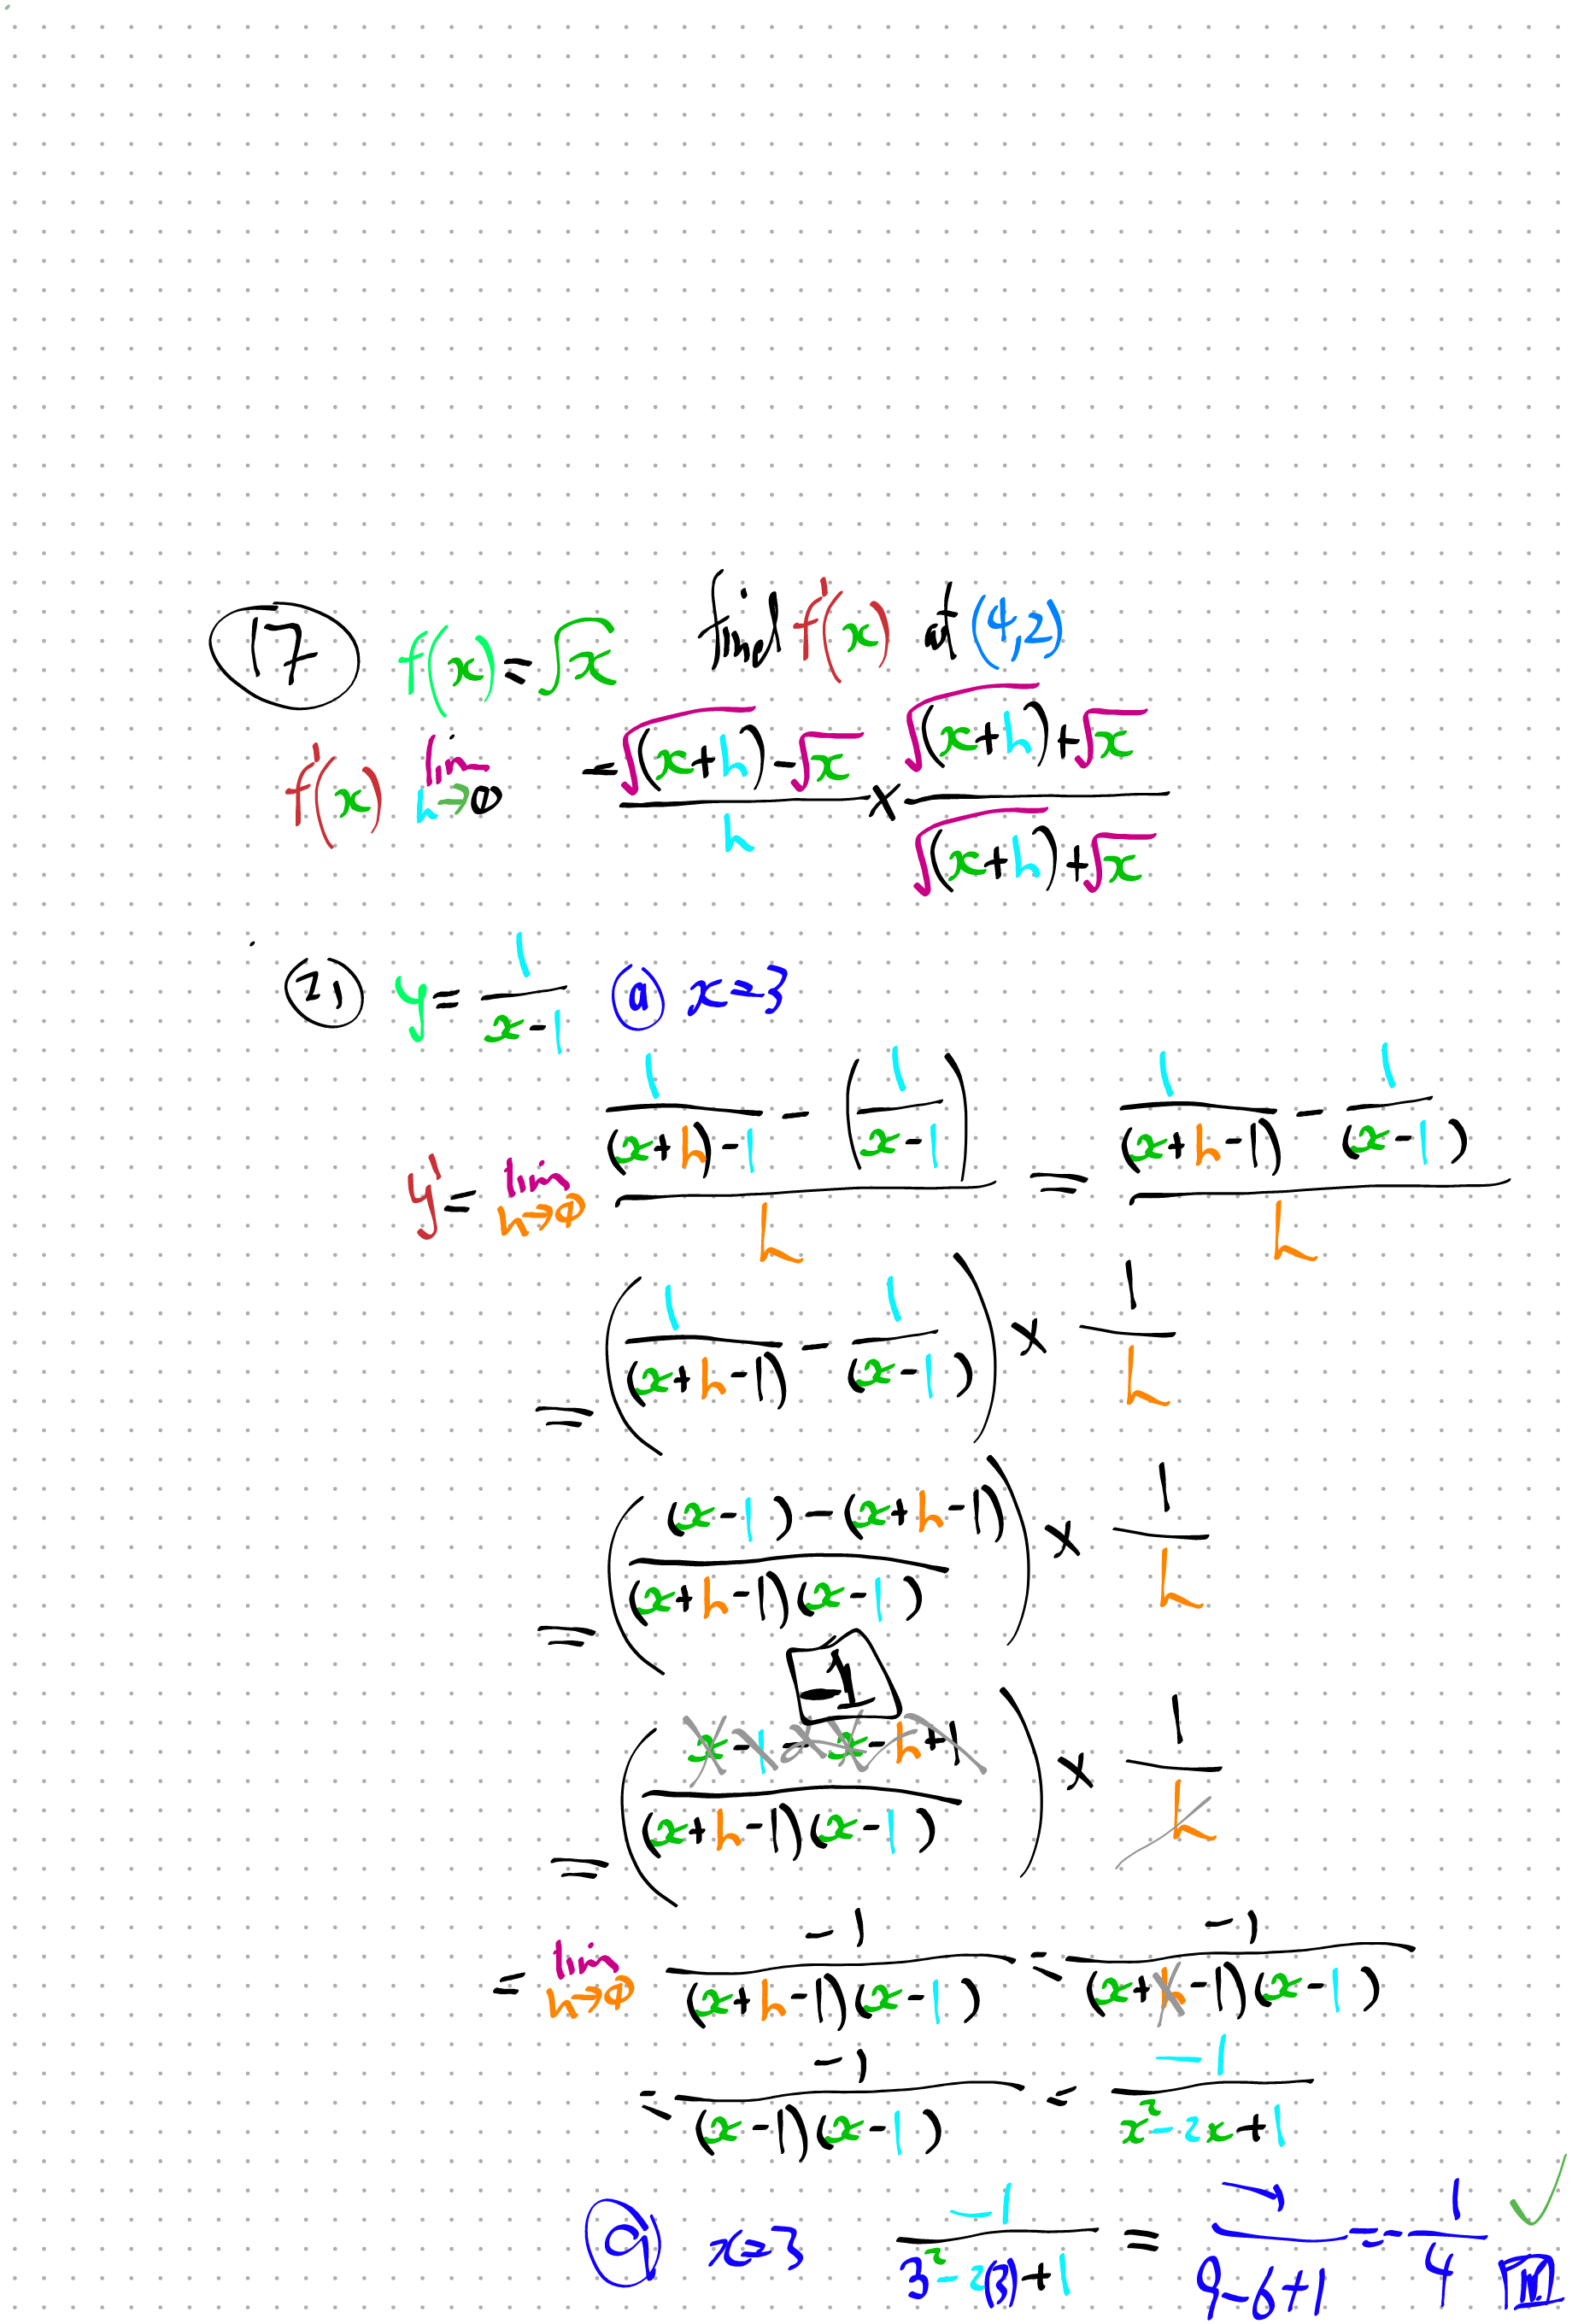 17 f(x)=√x find f'(x) at (4,2)
f'(x) lim h→0 = (√(x+h) - √x)/h × (√(x+h) + √x)/(√(x+h) + √x)
21 y = 1/(x-1) a x=3
y' = lim h→0 (1/((x+h)-1) - (1/(x-1)))/h = (1/(x+h-1) - 1/(x-1))/h
= (1/(x+h-1) - 1/(x-1)) × 1/h
= (((x-1) - (x+h-1))/((x+h-1)(x-1))) × 1/h
-1
= ((x-1-x-h+1)/((x+h-1)(x-1))) × 1/h
= lim h→0 -1/((x+h-1)(x-1)) = -1/((x+h-1)(x-1))
= -1/((x-1)(x-1)) = -1/(x²-2x+1)
a x=3 -1/(3²-2(3)+1) = -1/(9-6+1) = -1/4 ✓